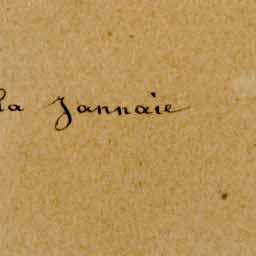 la Jannaie